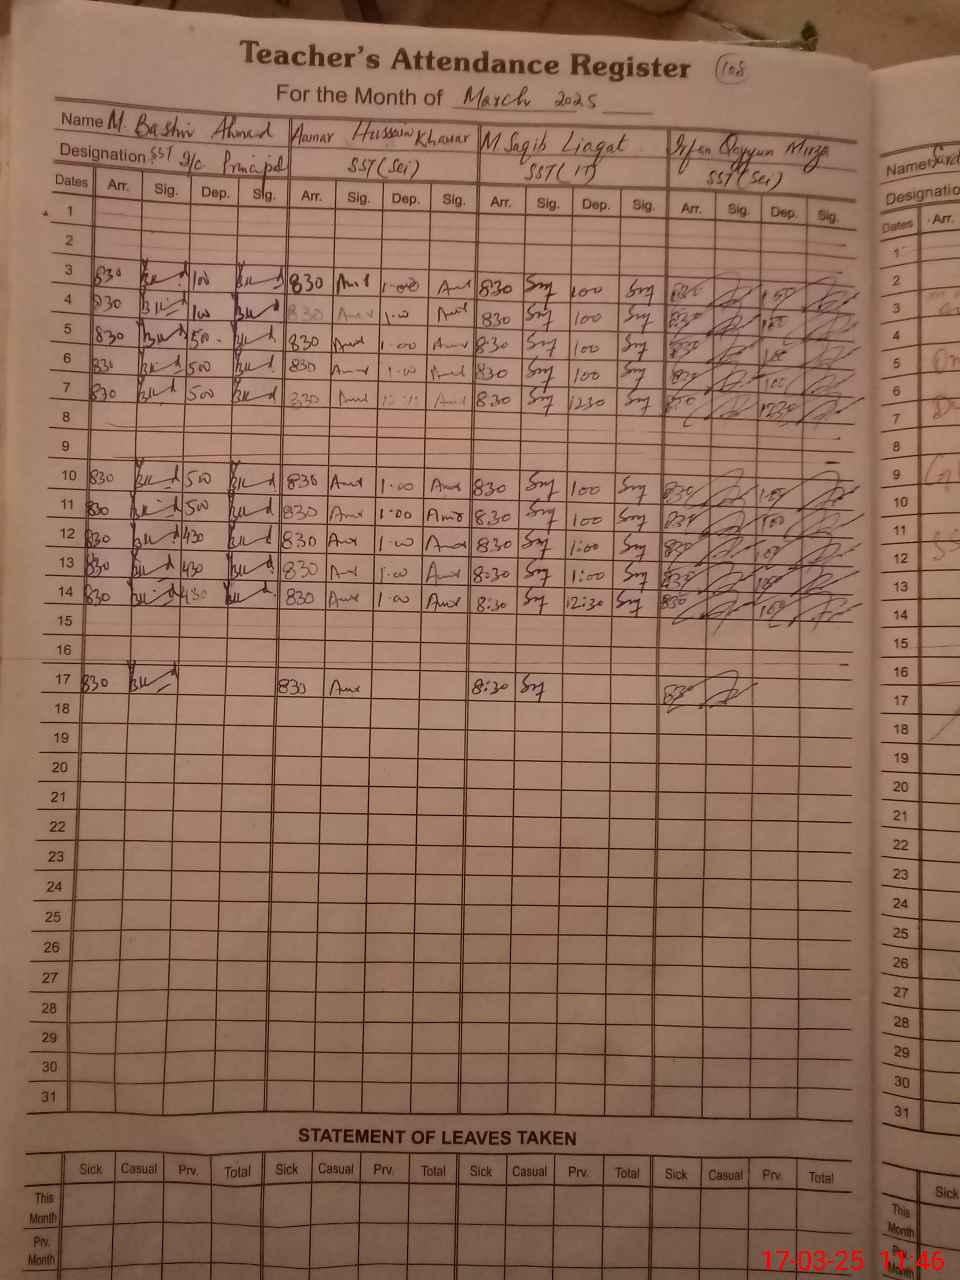 Teacher's Attendance Register 108
For the Month of March 2025
Name M. Bashir Ahmad Aamar Hussain Khawar M Saqib Liaqat Irfan Qayyum Mirza
Designation SST I/c Principal SST (Sci) SST (IT) SST (Sci)
Dates Arr. Sig. Dep. Sig. Arr. Sig. Dep. Sig. Arr. Sig. Dep. Sig. Arr. Sig. Dep. Sig.
1
2
3 830 100 830 1-00 830 100 830 100
4 830 100 830 1-00 830 100 830 100
5 830 500 830 1-00 830 100 830 100
6 830 500 830 1-00 830 100 830 100
7 830 500 830 830 1230 830 1230
8
9
10 830 500 830 1-00 830 100 830 100
11 830 500 830 1:00 830 100 830 100
12 830 430 830 1-00 830 1:00 830 100
13 830 430 830 1-00 8:30 1:00 830 100
14 830 430 830 1-00 8:30 12:30 830 100
15
16
17 830 830 8:30 830
18
19
20
21
22
23
24
25
26
27
28
29
30
31
STATEMENT OF LEAVES TAKEN
Sick Casual Prv. Total Sick Casual Prv. Total Sick Casual Prv. Total Sick Casual Prv. Total
This Month
Prv. Month
Name
Designatio
Dates Arr.
1
2
3
4
5
6
7
8
9
10
11
12
13
14
15
16
17
18
19
20
21
22
23
24
25
26
27
28
29
30
31
Sick
This
Month
Prv.
Month
17-03-25 11:46